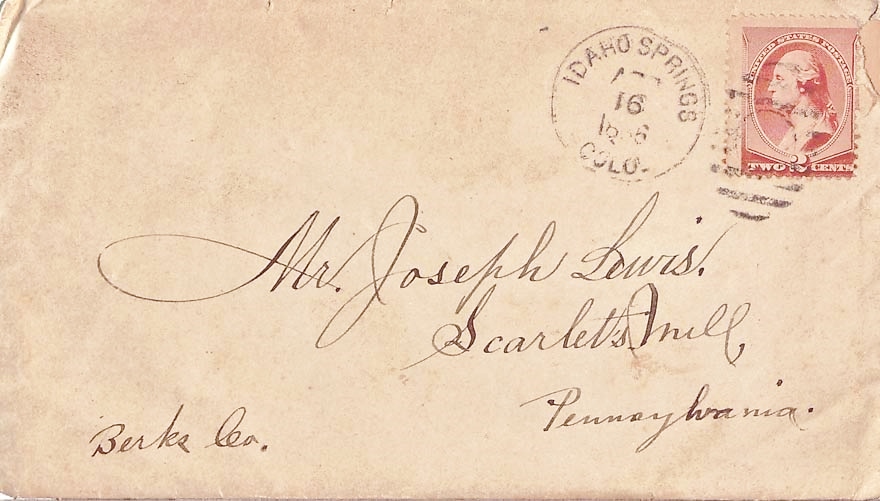 IDAHO SPRINGS
16
COLO.
UNITED STATES POSTAGE
TWO 2 CENTS
Mr. Joseph Lewis.
Scarlet's Mill,
Pennsylvania.
Berks Co.